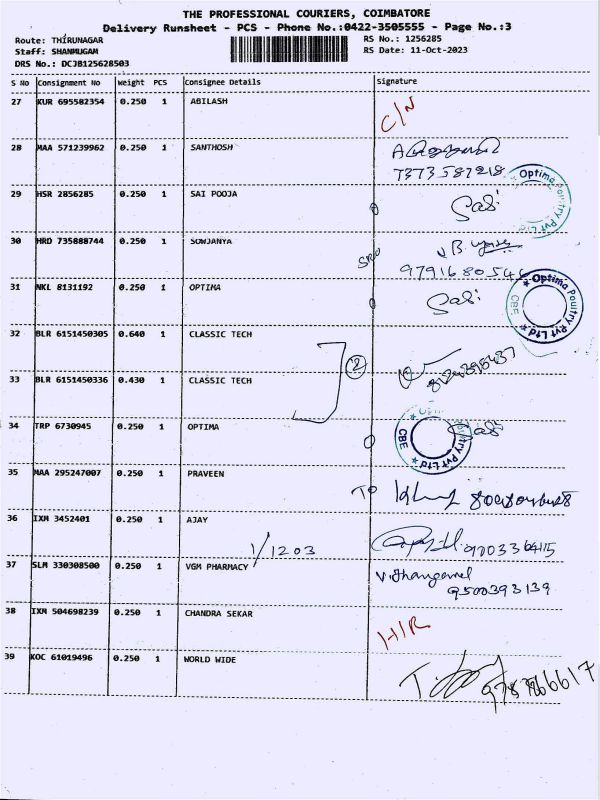 THE PROFESSIONAL COURIERS, COIMBATORE
Delivery Runsheet - PCS - Phone No.:0422-3505555 - Page No.:3
Route: THIRUNAGAR RS No.: 1256285
Staff: SHANMUGAM RS Date: 11-Oct-2023
DRS No.: DCJB125628503
S No Consignment No Weight PCS Consignee Details Signature
27 KUR 695582354 0.250 1 ABILASH C/N
28 MAA 571239962 0.250 1 SANTHOSH
7373587218
29 HSR 2856285 0.250 1 SAI POOJA Sasi
Optima Poultry Pvt Ltd
30 HRD 735888744 0.250 1 SOWJANYA
9791680546
31 NKL 8131192 0.250 1 OPTIMA Sasi
Optima Poultry Pvt Ltd CBE
32 BLR 6151450305 0.640 1 CLASSIC TECH
2
33 BLR 6151450336 0.430 1 CLASSIC TECH
34 TRP 6730945 0.250 1 OPTIMA Sasi
Poultry Pvt Ltd CBE
35 MAA 295247007 0.250 1 PRAVEEN
TO
36 IXM 3452401 0.250 1 AJAY
1/1203
37 SLM 330308500 0.250 1 VGM PHARMACY V.Thangavel
9500393139
38 IXM 504698239 0.250 1 CHANDRA SEKAR H/R
39 KOC 61019496 0.250 1 WORLD WIDE